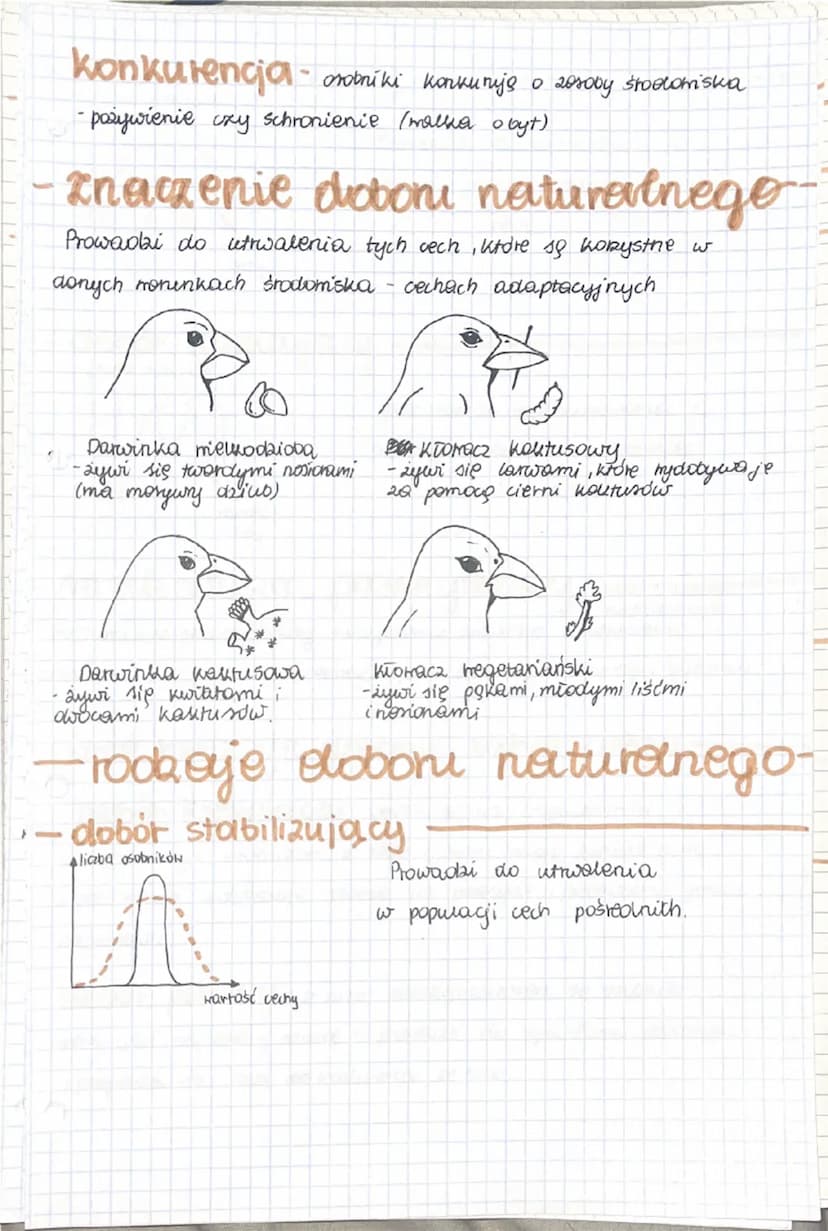 konkurencja - osobniki konkurują o zasoby środowiska
- pożywienie czy schronienie (walka o byt)
- znaczenie doboru naturalnego -
Prowadzi do utrwalenia tych cech, które są korzystne w
danych warunkach środowiska - cechach adaptacyjnych
Darwinka wielkodzioba
- żywi się twardymi nasionami
(ma masywny dziób)
Kłowacz kaktusowy
- żywi się larwami, które wydobywa je
za pomocą cierni kaktusów
Darwinka kaktusowa
- żywi się kwiatami i
owocami kaktusów.
Kłowacz wegetariański
- żywi się pąkami, młodymi liśćmi
i nasionami
- rodzaje doboru naturalnego -
- dobór stabilizujący
liczba osobników
wartość cechy
Prowadzi do utrwalenia
w populacji cech pośrednich.